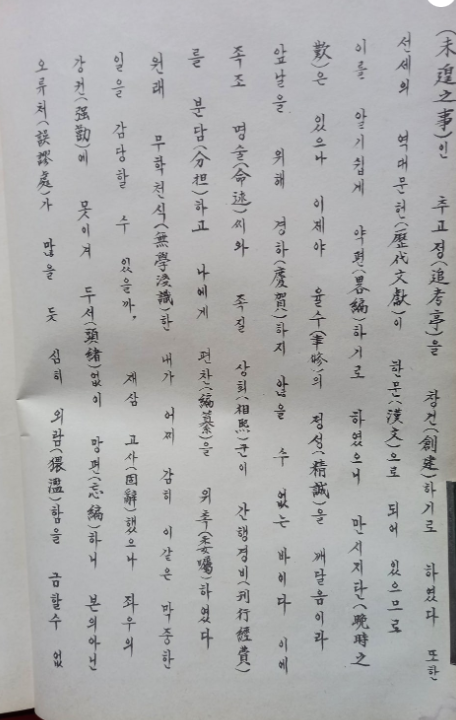 (未遑之事)인 추고정(追考亭)을 창건(創建)하기로 하였다 또한
선세의 역대문헌(歷代文獻)이 한문(漢文)으로 되어 있으므로
이를 알기쉽게 약편(畧編)하기로 하였으니 만시지탄(晩時之
歎)은 있으나 이제야 율수(聿修)의 정성(精誠)을 깨달음이라
앞날을 위해 경하(慶賀)하지 않을 수 없는 바이다 이에
족조 명술(命述)씨와 족질 상희(相熙)군이 간행경비(刊行經費)
를 분담(分担)하고 나에게 편찬(編纂)을 위촉(委囑)하였다
원래 무학천식(無學淺識)한 내가 어찌 감히 이같은 막중한
일을 감당할 수 있을까, 재삼 고사(固辭)했으나 좌우의
강권(强勸)에 못이겨 두서(頭緖)없이 망편(忘編)하니 본의아닌
오류처(誤謬處)가 많을 듯 심히 외람(猥濫)함을 금할수 없